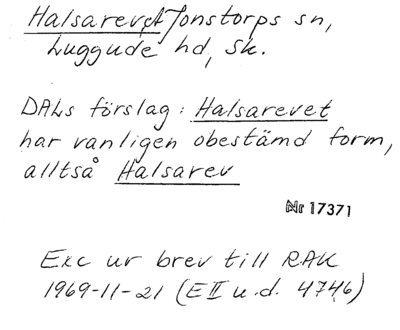 Halsarevet Jonstorps sn,
Luggude hd, Sk.
DALs förslag: Halsarevet
har vanligen obestämd form,
alltså Halsarev
Nr 17371
Exc ur brev till RAK
1969-11-21 (E II u.d. 4746)